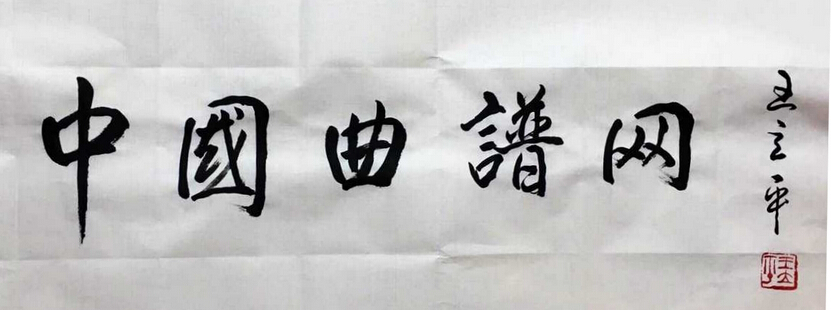 中國曲譜网
王立平